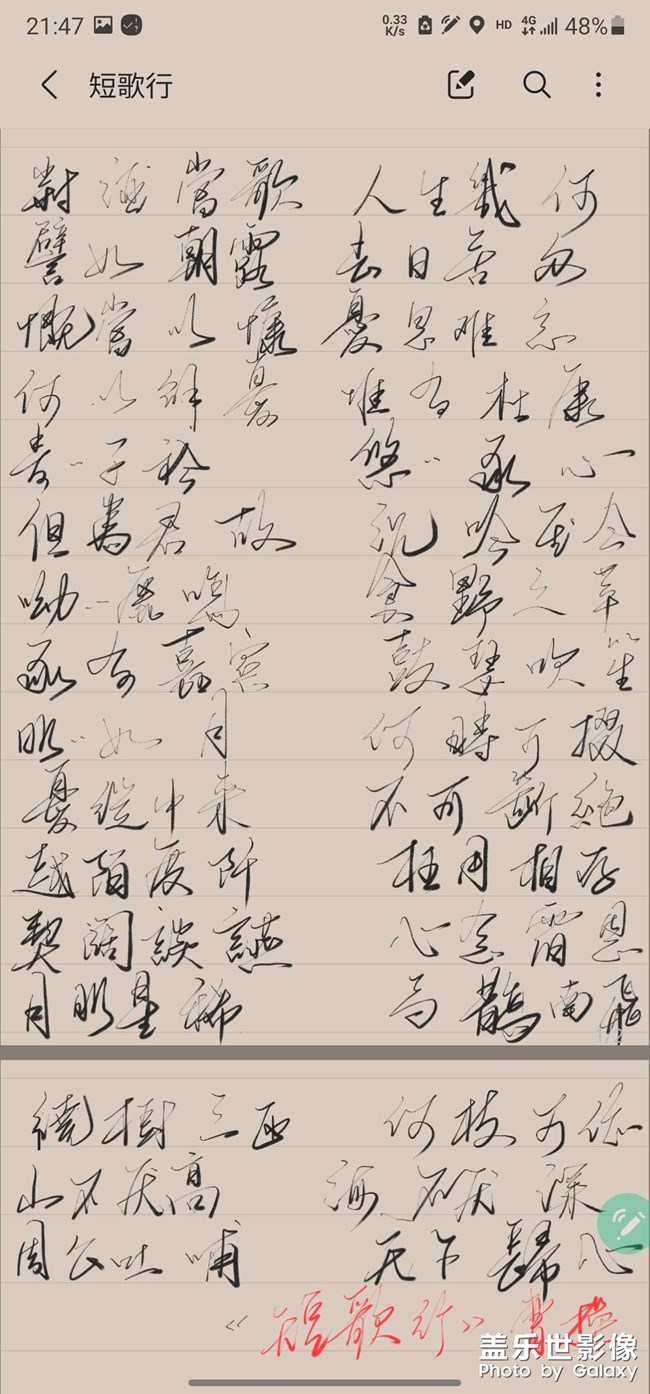 21:47 0.33 K/s HD 4G 48%
短歌行
對酒當歌 人生幾何
譬如朝露 去日苦多
慨當以慷 憂思难忘
何以解憂 惟有杜康
青··子衿 悠··我心
但為君故 沉吟至今
呦··鹿鳴 食野之苹
我有嘉賓 鼓瑟吹笙
明··如月 何時可掇
憂從中来 不可斷絕
越陌度阡 枉用相存
契闊談讌 心念舊恩
月明星稀 烏鵲南飛
繞樹三匝 何枝可依
山不厌高 海不厌深
周公吐哺 天下歸心
《短歌行》曹操
盖乐世影像
Photo by Galaxy